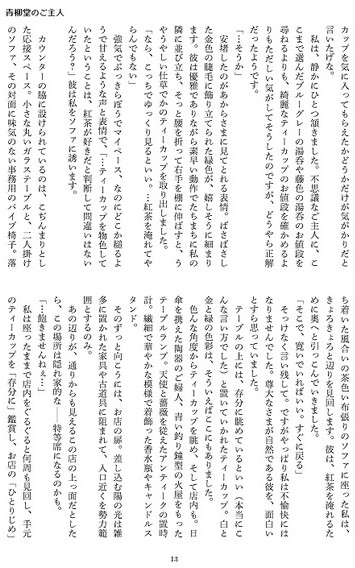 青柳堂のご主人
カップを気に入ってもらえたかどうかだけが気がかりだと
言いたげな。
私は、静かにひとつ頷きました。不思議なご主人に、こ
こまで選んだブルーグレーの湯呑や藤色の湯呑のお値段を
尋ねるよりも、綺麗なティーカップのお値段を確かめるよ
りもただしい気がしてそうしたのですが、どうやら正解
だったようです。
「…そうか」
安堵したのがあからさまに見てとれる表情。ばさばさし
た金色の睫毛に飾り立てられた緑色が、嬉しそうに細まり
ます。彼は優雅でありながら素早い動作でたちまちに私の
隣に並び立ち、そっと腰を折って右手を棚に伸ばすと、う
やうやしい仕草でかのティーカップを取り出しました。
「なら、こっちでゆっくり見るといい。…紅茶を淹れてや
らんでもない」
強気でぶっきらぼうでマイペース、なのにどこか縋るよ
うで甘えるような声と表情で、「…ティーカップを物色して
いたということは、紅茶が好きだと判断して間違いはない
んだろう？」彼は私をソファに誘います。
カウンターの脇に設けられているのは、こぢんまりとし
た応接スペース。小さな丸いガラステーブルと、二人掛け
のソファ、その対面に味気のない事務用のパイプ椅子。落
ち着いた風合いの茶色い布張りのソファに座った私は、
きょろきょろと辺りを見回します。彼は、紅茶を淹れるた
めに奥へと引っこんでいきました。
「そこで、寛いでいればいい。すぐに戻る」
そっけなく言い残して。ですがやっぱり私は不愉快には
なりませんでした。尊大なさまが自然である彼を、面白い
とすら思っていました。
テーブルの上には、存分に眺めているといい（本当にこ
んな言い方でした）と置いていかれたティーカップ。白と
金と緑の色彩は、そういえばどこにもありました。
色んな角度からティーカップを眺め、そして店内も。日
傘を携えた陶器のご婦人、青い釣り鐘型の火屋をもった
テーブルランプ。天使と薔薇を従えたアンティークの置時
計。繊細で華やかな模様で着飾った香水瓶やキャンドルス
タンド。
そのずっと向こうには、お店の扉。差し込む陽の光は雑
多に置かれた家具や古道具に阻まれて、入口近くを勢力範
囲とするのみ。
あの辺りが、通りからも見えるこの店の上っ面だとした
ら、この場所は隠れ家的な――特等席になるのかも。
「…飽きませんねぇ…」
私は座ったままで店内をぐるぐると何周も見回し、手元
のティーカップを「存分に」鑑賞し、お店の「ひとりじめ」
13